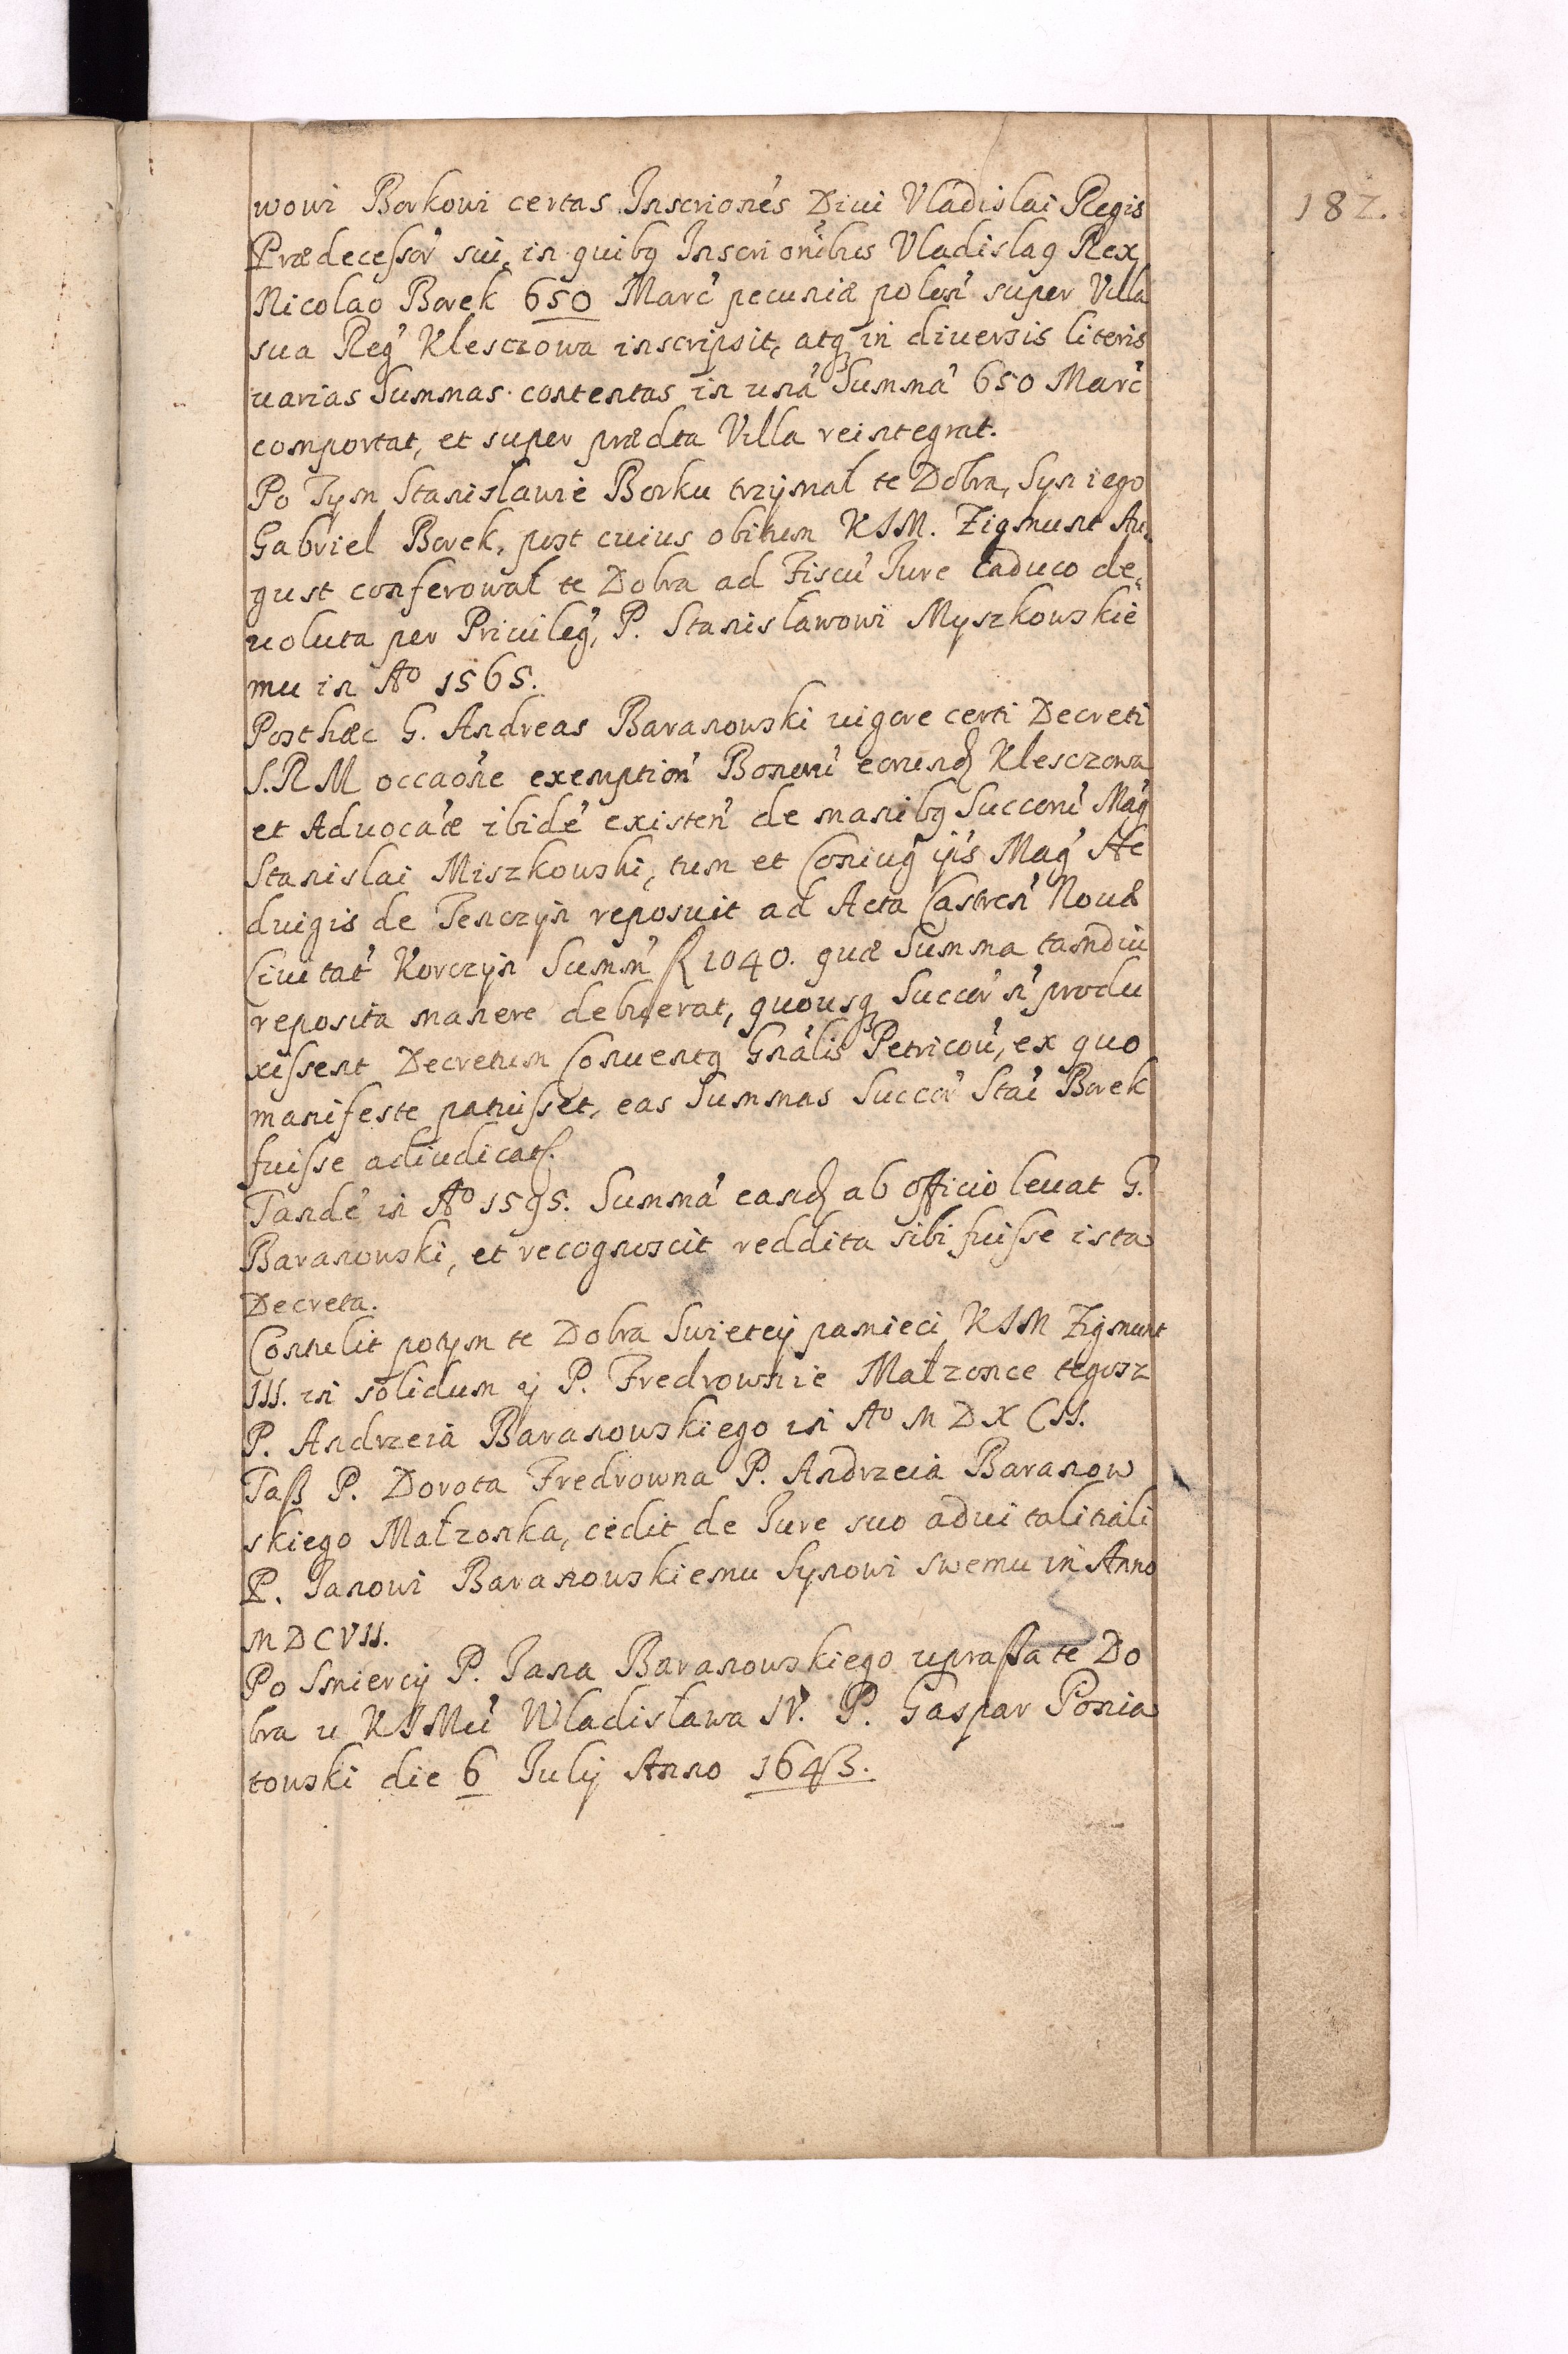 182.
wowi Borkowi certas Inscriones Divi Vladislai Regis
Prædecessor sui, in quibq Inscrionibus Vladislaq Rex
Nicolao Borek 650 Marc pecuniæ polon super Villa
sua Reg Klesczowa inscripsit, atq in diversis literis
varias Summas contentas in una Summa 650 Marc
comportat, et super prædta Villa reintegrat.
Po Tym Stanislawie Borku trzymał te Dobra, Syn iego
Gabriel Borek, post cuius obitum KJM. Zigmunt Au,
gust conferował te Dobra ad Fiscu Iure caduco de,
voluta per Privileg, P. Stanisławowi Myszkowskie
mu in Aº 1565.
Posthæc G. Andreas Baranowski vigore certi Decreti
S.R M occaone exemption Bonoru eorund Klesczowa
et Advocaæ ibide existen de manibq Succoru Mag
Stanislai Miszkowski, tum et Coniug ips Mag He
dvigis de Tenczyn reposuit ad Acta Castren Novæ
Civitat Korczyn Summ f 1040. quæ Summa tamdiu
reposita manere debuerat, quousq Succor n produ
xissent Decretum Conventq Gnalis Petricov, ex quo
manifeste patuisset, eas Summas Succor Stai Borek
fuisse adiudicat.
Tande in Aº 1595. Summa eand ab officio levat G.
Baranowski, et recognoscit reddita sibi fuisse ista
Decreta.
Contulit potym te Dobra Swietey pamieci KJM Zigmunt
III. in solidum y P. Fredrownie Małzonce tegosz
P. Andrzeia Baranowskiego in Aº M D X CII.
Taß P. Dorota Fredrowna P. Andrzeia Baranow
skiego Małzonka, cedit de Iure suo advitalitiali
P. Ianowi Baranowskiemu Synowi swemu in Anno
M D C VII.
Po Smiercij P. Iana Baranowskiego uprassa te Do
bra u KJMci Wladisława IV. P. Gaspar Ponia
towski die 6 Iulij Anno 1643.